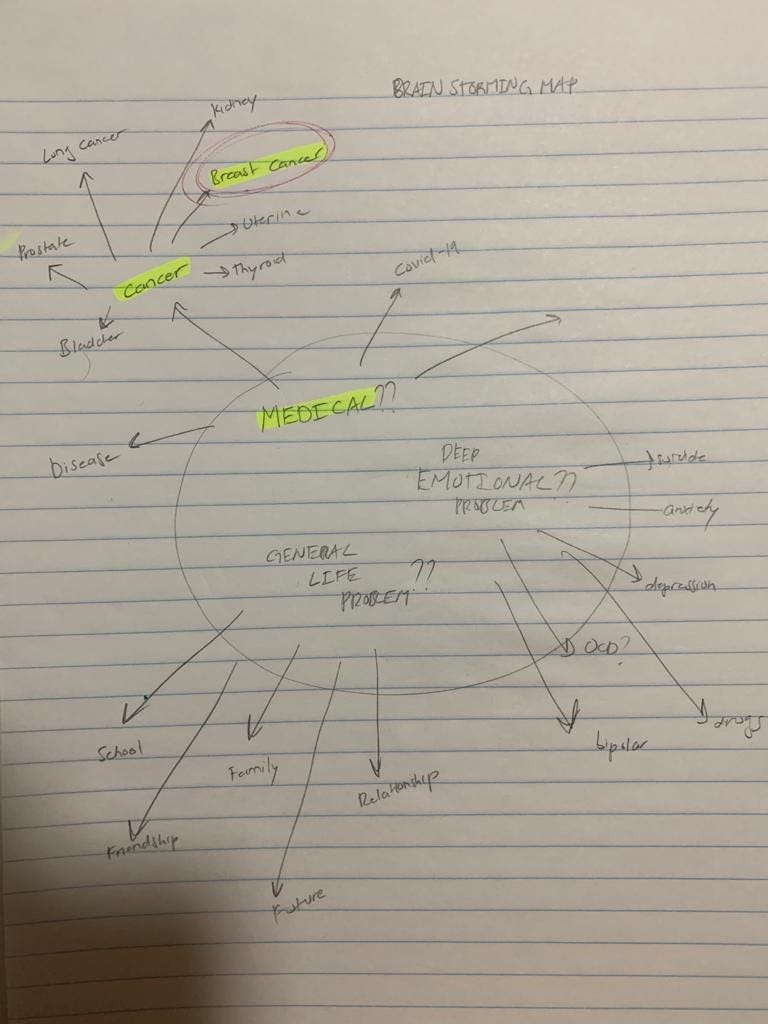 BRAIN STORMING MAP
Kidney
Lung cancer
Breast Cancer
Uterine
Prostate
Thyroid
Cancer
Covid-19
Bladder
MEDICAL??
Disease
DEEP
EMOTIONAL??
PROBLEM
suicide
anxiety
GENERAL
LIFE ??
PROBLEM
depression
OCD?
drugs
bipolar
School
Family
Relationship
Friendship
Future